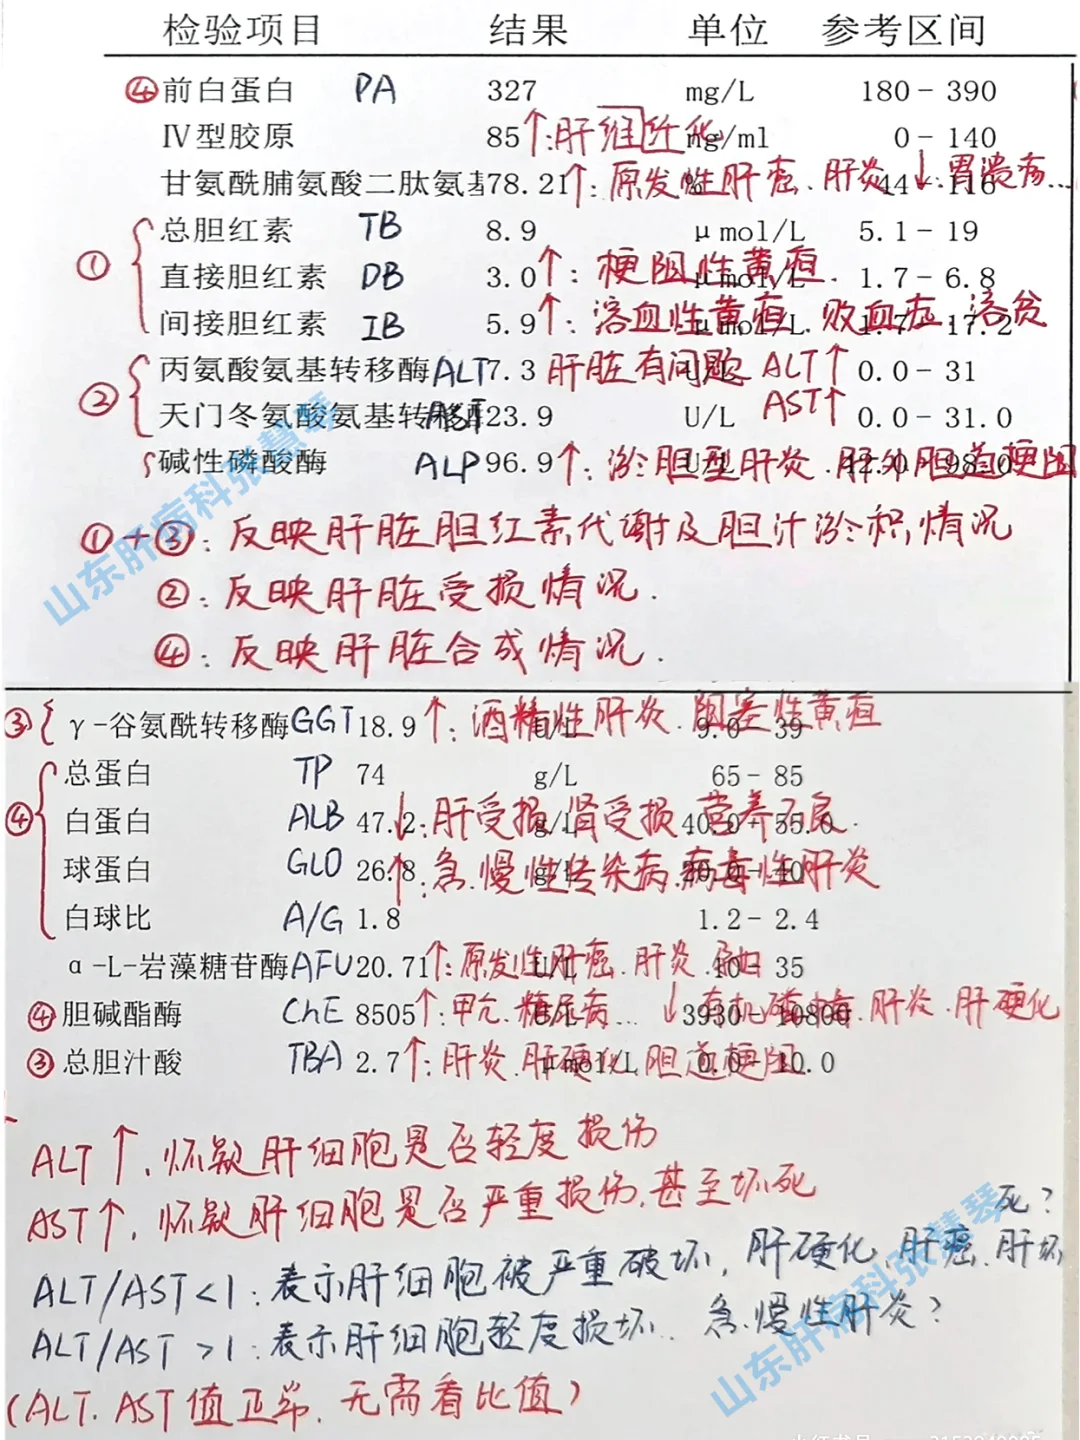 检验项目 结果 单位 参考区间
④ 前白蛋白 PA 327 mg/L 180-390
Ⅳ型胶原 85 ↑:肝纤维化 ng/ml 0-140
甘氨酰脯氨酸二肽氨基 78.21 ↑:原发性肝癌.肝炎 ↓:胃溃疡... 44-116
① 总胆红素 TB 8.9 μmol/L 5.1-19
直接胆红素 DB 3.0 ↑:梗阻性黄疸. μmol/L 1.7-6.8
间接胆红素 IB 5.9 ↑:溶血性黄疸.败血症.溶贫 μmol/L 1.7-17.2
② 丙氨酸氨基转移酶 ALT 7.3 肝脏有问题 ALT↑ U/L 0.0-31
天门冬氨酸氨基转移酶 AST 23.9 U/L AST↑ 0.0-31.0
碱性磷酸酶 ALP 96.9 ↑:淤胆型肝炎.肝外胆道梗阻 U/L 42.0-98.0
①+③:反映肝脏胆红素代谢及胆汁淤积情况
②:反映肝脏受损情况.
④:反映肝脏合成情况.
③ γ-谷氨酰转移酶 GGT 18.9 ↑:酒精性肝炎.阻塞性黄疸 U/L 9.0-39
④ 总蛋白 TP 74 g/L 65-85
白蛋白 ALB 47.2 ↓:肝受损.肾受损.营养不良. g/L 40.0-55.0
球蛋白 GLO 26.8 ↑:急.慢性传染病.病毒性肝炎 g/L 20.0-40
白球比 A/G 1.8 1.2-2.4
α-L-岩藻糖苷酶 AFU 20.71 ↑:原发性肝癌.肝炎.孕妇 U/L 10-35
④ 胆碱酯酶 ChE 8505 ↑:甲亢.糖尿病... ↓:有机磷中毒.肝炎.肝硬化 U/L 3930-10800
③ 总胆汁酸 TBA 2.7 ↑:肝炎.肝硬化.胆道梗阻 μmol/L 0.0-10.0
ALT↑.怀疑肝细胞是否轻度损伤
AST↑.怀疑肝细胞是否严重损伤.甚至坏死
ALT/AST<1:表示肝细胞被严重破坏,肝硬化.肝癌.肝坏死?
ALT/AST>1:表示肝细胞轻度损坏.急.慢性肝炎?
(ALT.AST值正常.无需看比值)
山东肝病科张慧琴
山东肝病科张慧琴